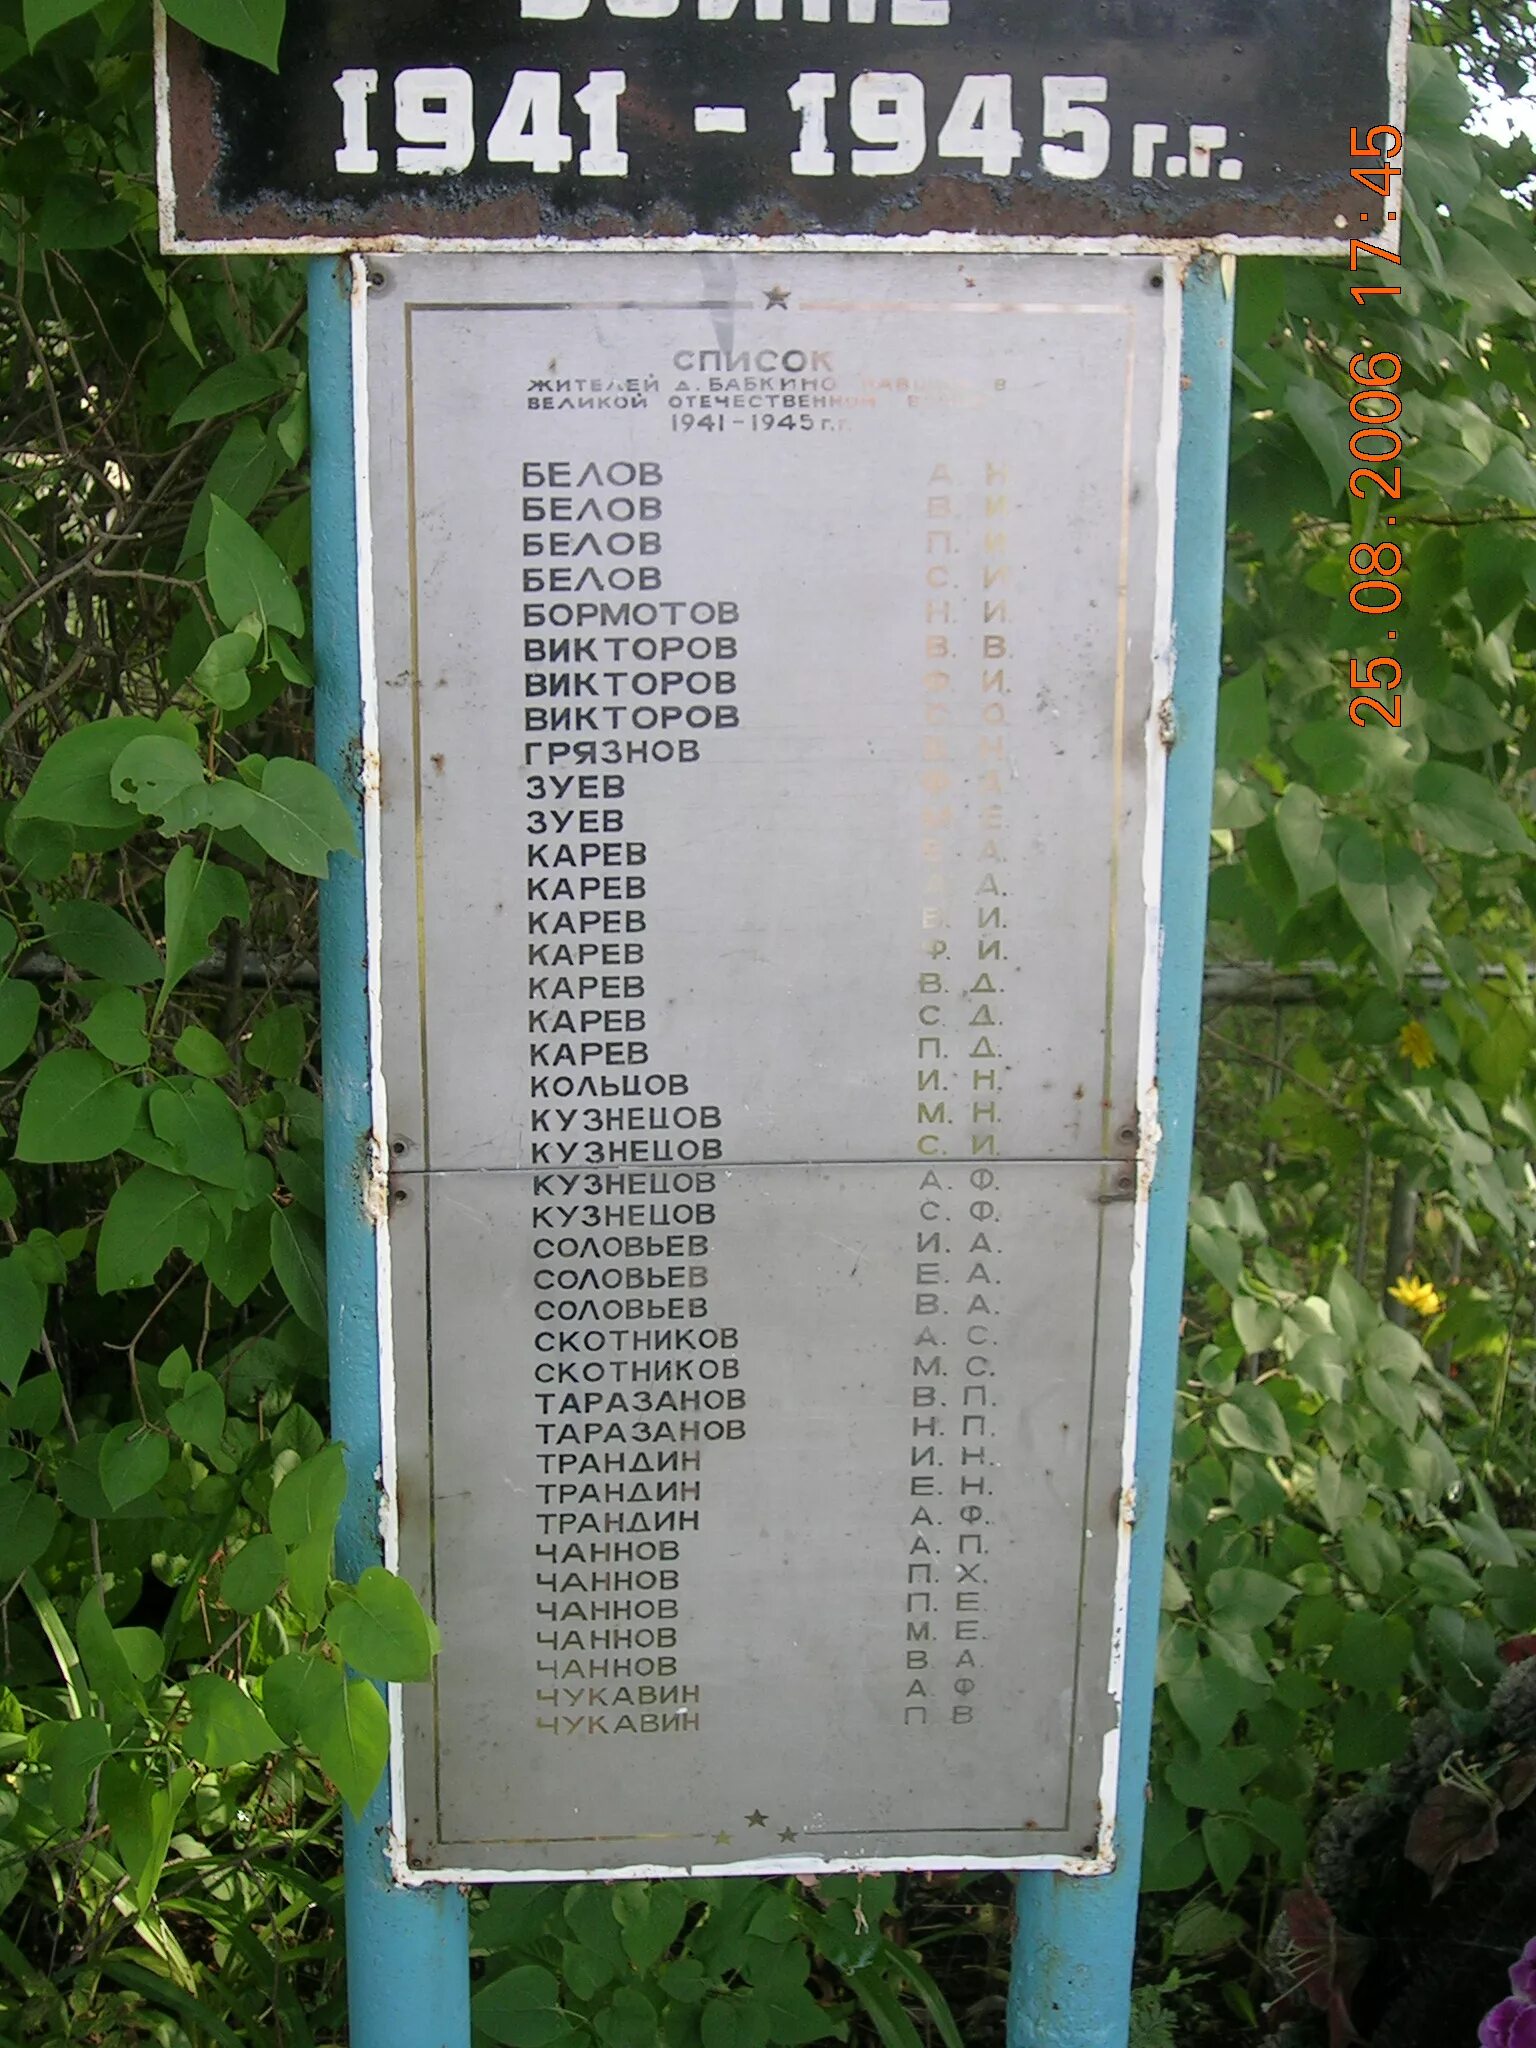 1941 - 1945 г.г.
СПИСОК
ЖИТЕЛЕЙ Д. БАБКИНО ПАВШИХ В
ВЕЛИКОЙ ОТЕЧЕСТВЕННОЙ ВОЙНЕ
1941-1945 г.г.
БЕЛОВ А Н
БЕЛОВ В. И
БЕЛОВ П. И
БЕЛОВ С. И
БОРМОТОВ Н. И.
ВИКТОРОВ В. В.
ВИКТОРОВ Ф. И.
ВИКТОРОВ О.
ГРЯЗНОВ Н.
ЗУЕВ Ф А
ЗУЕВ Е.
КАРЕВ А.
КАРЕВ А.
КАРЕВ В. И.
КАРЕВ Ф. И.
КАРЕВ В. Д.
КАРЕВ С. Д.
КАРЕВ П. Д.
КОЛЬЦОВ И. Н.
КУЗНЕЦОВ М. Н.
КУЗНЕЦОВ С. И.
КУЗНЕЦОВ А. Ф.
КУЗНЕЦОВ С. Ф.
СОЛОВЬЕВ И. А.
СОЛОВЬЕВ Е. А.
СОЛОВЬЕВ В. А.
СКОТНИКОВ А. С.
СКОТНИКОВ М. С.
ТАРАЗАНОВ В. П.
ТАРАЗАНОВ Н. П.
ТРАНДИН И. Н.
ТРАНДИН Е. Н.
ТРАНДИН А. Ф.
ЧАННОВ А. П.
ЧАННОВ П. Х.
ЧАННОВ П. Е.
ЧАННОВ М. Е.
ЧАННОВ В А.
ЧУКАВИН А. Ф
ЧУКАВИН П В
25.08.2006 17:45